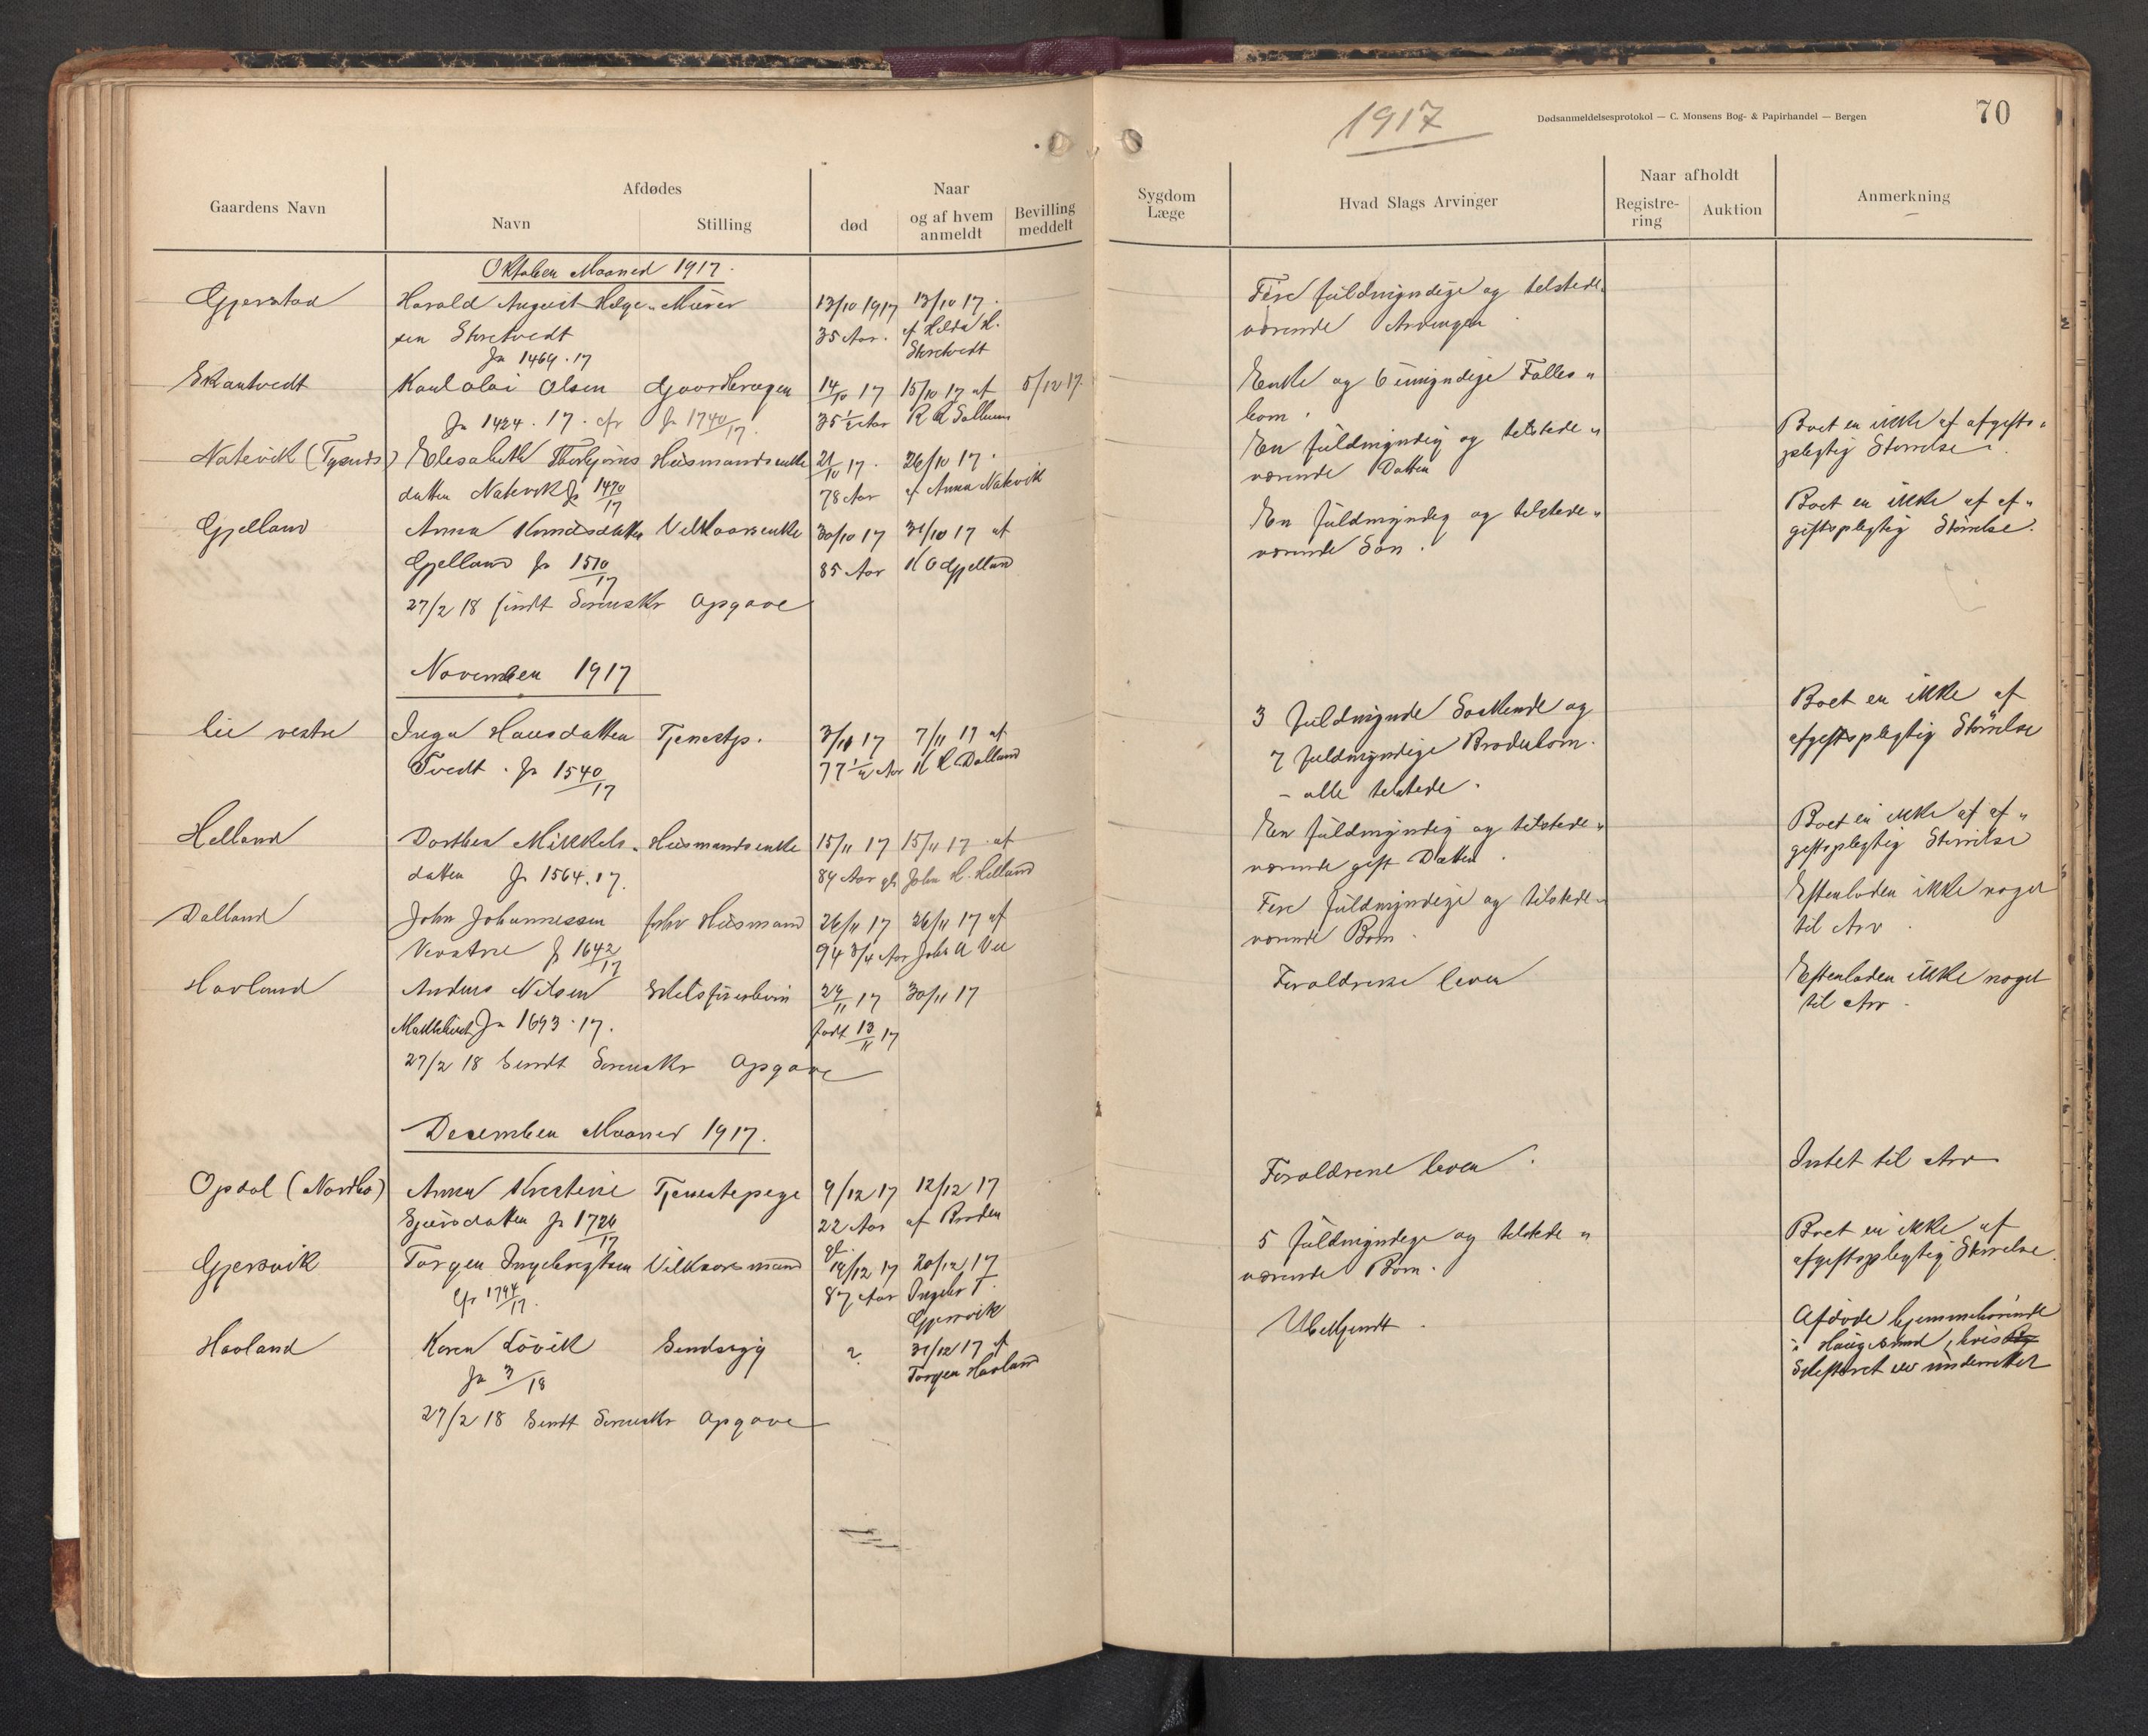 1917
Dødsanmeldelsesprotokol — C. Monsens Bog- & Papirhandel — Bergen
70
Gaardens Navn
Afdødes
Navn
Stilling
Naar
død
og af hvem anmeldt
Bevilling meddelt
Sygdom
Læge
Hvad Slags Arvinger
Naar afholdt
Registre-
ring
Auktion
Anmerkning
Oktober Maaned 1917.
Gjerstad Harald August Helge- Murer 13/10 1917 13/10 17. Fire fuldmyndige og tilstede-
sen Storetvedt 35 Aar. af Hilda H. værende Arvinger
Jr 1469.17 Storetvedt
Skantvedt Karl Olai Olsen Gaardbruger 14/10 17 15/10 17 af 5/12 17. Enke og 6 umyndige Fælles-
Jr 1424.17. cfr Jr 1740/17. 35 1/2 Aar R R børn.
Natevik (Tysnes) Elesabeth Thorbjørns Husmandsenke 21/10 17. 26/10 17. En fuldmyndig og tilstede- Boet er ikke af afgifts-
datter Natevik Jr 1470/17 78 Aar af Anna Natevik værende Datter pligtig Størrelse.
Gjelland Anna Knudsdatter Vilkaarsenke 30/10 17 31/10 17 af En fuldmyndig og tilstede- Boet er ikke af af-
Gjelland Jr 1510/17 85 Aar K O Gjelland værende Søn. giftspligtig Størrelse.
27/2 18 sendt Sorenskr Opgave
November 1917
Lie vestre Inga Hansdatter Tjenestp. 3/11 17 7/11 17 af 3 fuldmynde Søskende og Boet er ikke af
Tvedt. Jr 1540/17 77 1/2 Aar K K Dalland 7 fuldmyndige Broderbørn. afgiftspligtig Størrelse
- alle tilstede.
Helland Dorthea Mikkels- Husmandsenke 15/11 17 15/11 17 af En fuldmyndig og tilstede- Boet er ikke af af-
datter Jr 1564.17. 89 Aar gl John H. Helland værende gift Datter. giftspligtig Størrelse
Dalland John Johannessen forhv Husmand 26/11 17 26/11 17 af Fire fuldmyndige og tilstede- Efterlader ikke noget
Jr 1642/17 94 3/4 Aar John A værende Børn. til Arv.
Havland Anders Nilsen 29/11 17 30/11 17 Forældrene lever Efterlader ikke noget
Jr 1693.17. født 13/11 17 til Arv.
27/2 18 Sendt Sorenskr Opgave
December Maaned 1917.
Opdal (Nordbø) Anna Kristine Tjenestepige 9/12 17 12/12 17 Forældrene lever. Intet til Arv
Sjursdatter Jr 1726/17 22 Aar af Broder
Gjersvik Torger Ingebrigtsen Vilkaarsmand 19/12 17 20/12 17 5 fuldmyndige og tilstede- Boet er ikke af
Jr 1744/17. 87 Aar Ingebr T. værende Børn. afgiftspligtig Størrelse.
Gjersvik
Havland Karen Løvik Sindsyg ? 31/12 17 af Ubekjendt. Afdøde hjemmehørende
Jr 3/18 Torger Havland i Haugesund, hvis
Skifteret er underrettet
27/2 18 Sendt Sorenskr Opgave